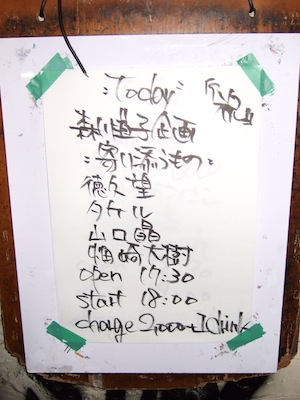 "Today"
森川ゆう子企画
"寄り添うもの"
徳久望
タケル
山口晶
蠣崎大樹
open 17:30
start 18:00
charge 2,000+1drink